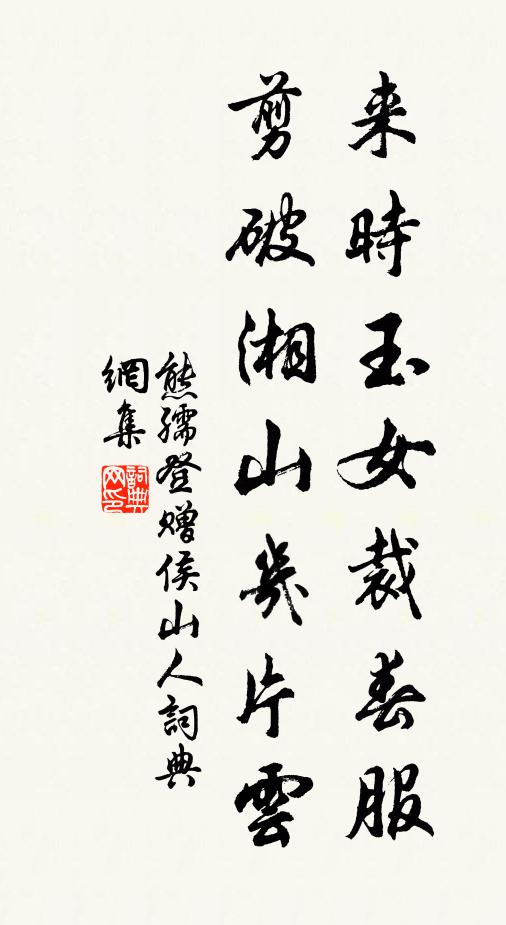 来時玉女裁春服
剪破湘山幾片雲
熊孺登贈侯山人詞典
網集
詞典
网印